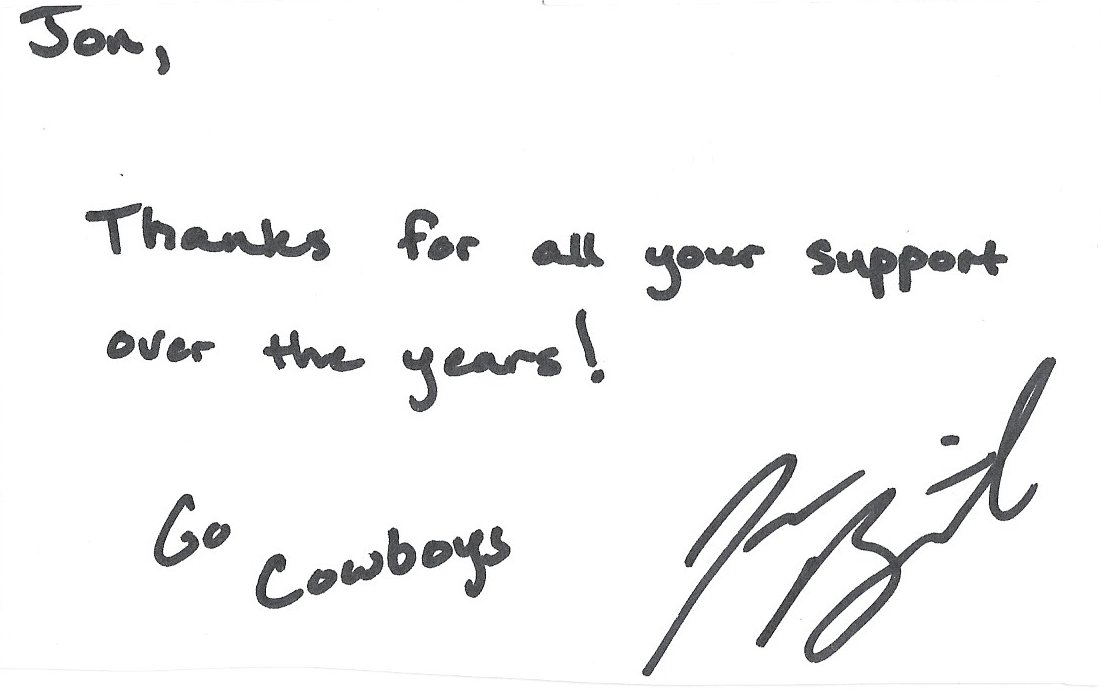 Jon,
Thanks for all your support
over the years!
Go
Cowboys